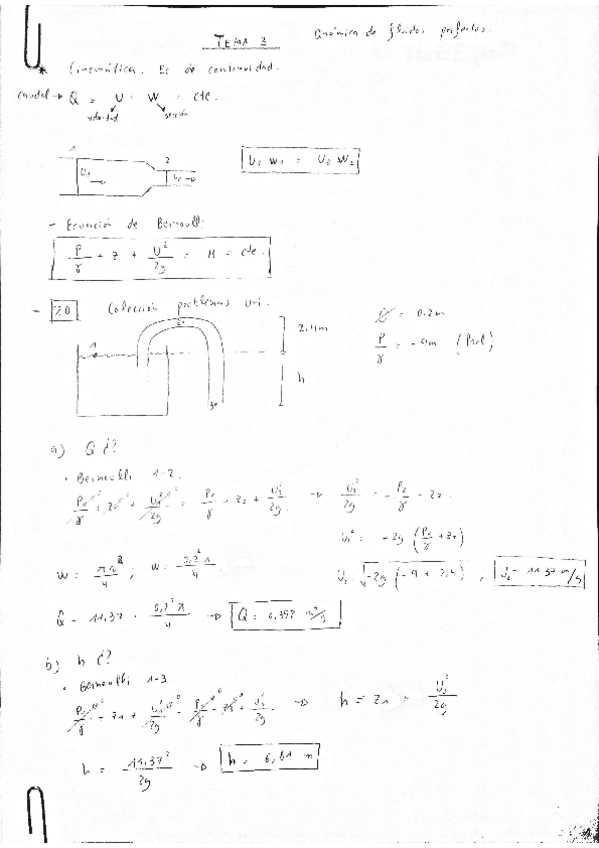 TEMA 3
Dinámica de fluidos perfectos.
* Cinemática. Ec de continuidad.
caudal → Q = U · W = cte.
velocidad sección
1 2
U1 W1 = U2 W2
- Ecuación de Bernoulli:
P/γ + z + U²/2g = H = cte.
- 20 Colección problemas Uni.
2,4m
h
1 2 3
Ø = 0.2m
P/γ = -9m (Rel)
a) Q ¿?
· Bernoulli 1-2.
P1/γ + z1 + U1²/2g = P2/γ + z2 + U2²/2g → U2²/2g = -P2/γ - z2.
U2² = -2g (P2/γ + z2)
W = ; W = 0,2²π/4
U2 = √-2g (-9 + 2,4) ; U2 = 11.37 m/s
Q = 11,37 · 0,2²π/4 → Q = 0,357 m³/s
b) h ¿?
· Bernoulli 1-3
P1/γ + z1 + U1²/2g = P3/γ + z3 + U3²/2g → h = z1 = U3²/2g
h = 11.37²/2g → h = 6,61 m